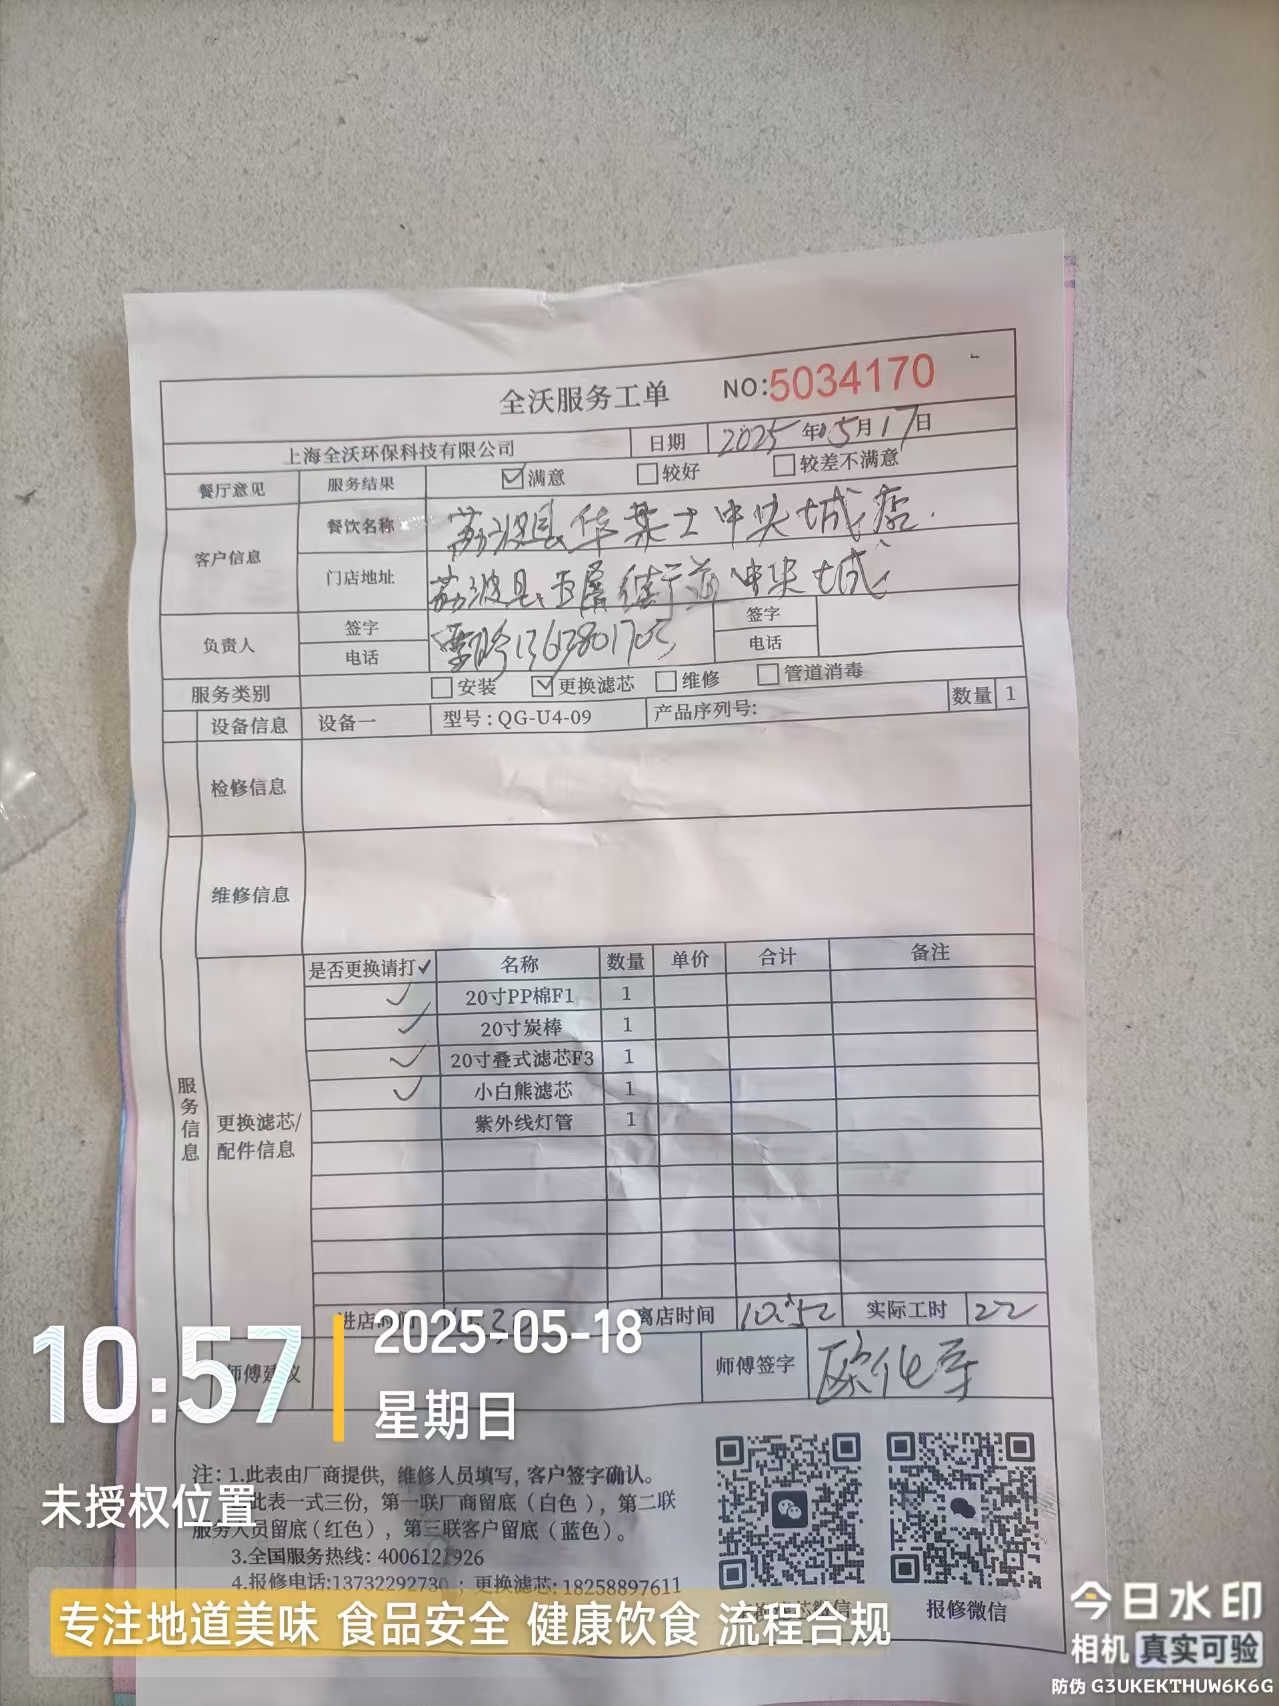 全沃服务工单 NO:5034170
上海全沃环保科技有限公司 日期 2025年5月17日
餐厅意见 服务结果 ☑满意 □较好 □较差不满意
客户信息 餐饮名称 荔波县华莱士中央城店
门店地址 荔波县玉屏街道中央城
负责人 签字 签字
电话 电话
服务类别 □安装 ☑更换滤芯 □维修 □管道消毒
设备信息 设备一 型号:QG-U4-09 产品序列号: 数量 1
检修信息
维修信息
服务信息
更换滤芯/
配件信息
是否更换请打✓ 名称 数量 单价 合计 备注
✓ 20寸PP棉F1 1
✓ 20寸炭棒 1
✓ 20寸叠式滤芯F3 1
✓ 小白熊滤芯 1
紫外线灯管 1
进店时间 离店时间 10:52 实际工时 22
师傅建议 师傅签字
注:1.此表由厂商提供,维修人员填写,客户签字确认。
此表一式三份,第一联厂商留底(白色),第二联
服务人员留底(红色),第三联客户留底(蓝色)。
3.全国服务热线:4006121926
4.报修电话:13732292730;更换滤芯:18258897611
报修微信
10:57
2025-05-18
星期日
未授权位置
专注地道美味 食品安全 健康饮食 流程合规
今日水印
相机 真实可验
防伪 G3UKEKTHUW6K6G